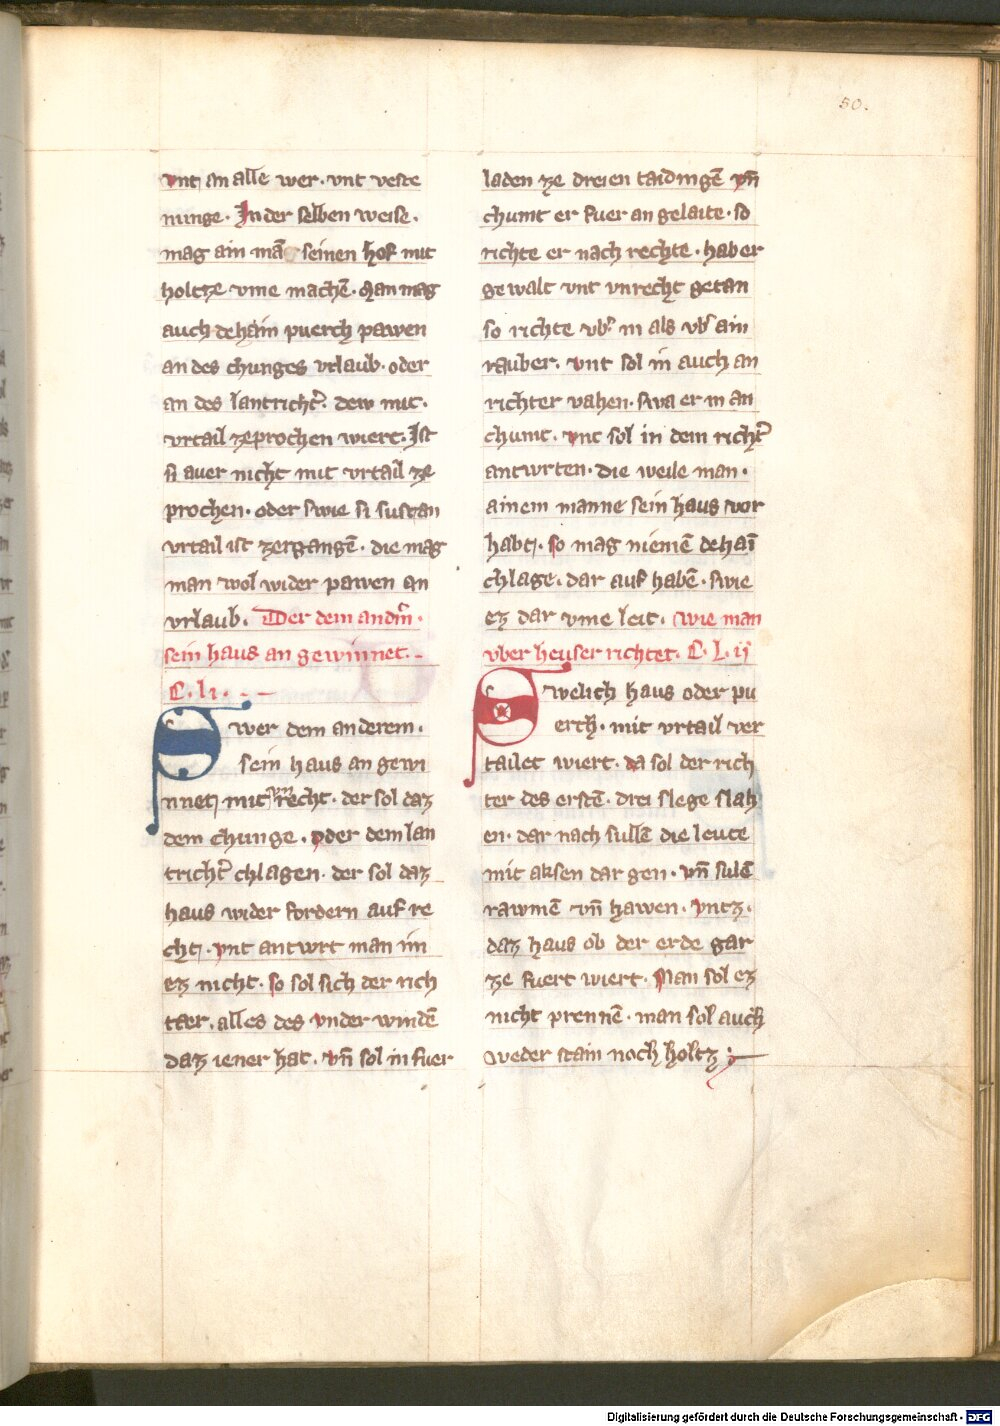 50.
vnt an alle wer · vnt veste
nunge · In der selben weise ·
mag ain mā seinen hof mit
holtze vme machē · Man mag
auch dehain puerch pawen
an des chunges vrlaub · oder
an des lantrichtˀ · dew mit ·
vrtail zeprochen wiert · Ist
si auer nicht mit vrtail ze
prochen · oder swie si sust an
vrtail ist zergangē · die mag
man wol wider pawen an
vrlaub · Der dem andˀm ·
sein haus an gewinnet · –
C · li · – –
Swer dem anderem ·
sein haus an gewi
nnet mit vnrecht · der sol daz
dem chunge · oder dem lan
trichtˀ chlagen · der sol daz
haus wider fordern auf re
cht · vnt antwrt man im
ez nicht · so sol sich der rich
ter · alles des vnder windē
daz iener hat · vn̄ sol in fuer
laden ze dreien taidingē vn̄
chumt er fuer an gelaite · so
richte er nach rechte · hab er
gewalt vnt vnrecht getan
so richte vbˀ in als vbˀ ain
rauber · vnt sol in auch an
richter vahen · swa er in an
chumt · vnt sol in dem richtˀ
antwrten · die weile man ·
ainem manne sein haus vor
habt · so mag niemē dehaī
chlage · dar auf habē · swie
ez dar vme leit · wie man
vber heuser richtet · C · L · ij
Swelich haus oder pu
erch · mit vrtail ver
tailet wiert · da sol der rich
ter des erstē · drei slege slah
en · dar nach sullē die leute
mit aksen dar gen · vn̄ sulē
rawmē vn̄ hawen · vntz ·
daz haus ob der erde gar
ze fuert wiert · Man sol ez
nicht prennē · man sol auch
weder stain noch holtz ;
Digitalisierung gefördert durch die Deutsche Forschungsgemeinschaft - DFG